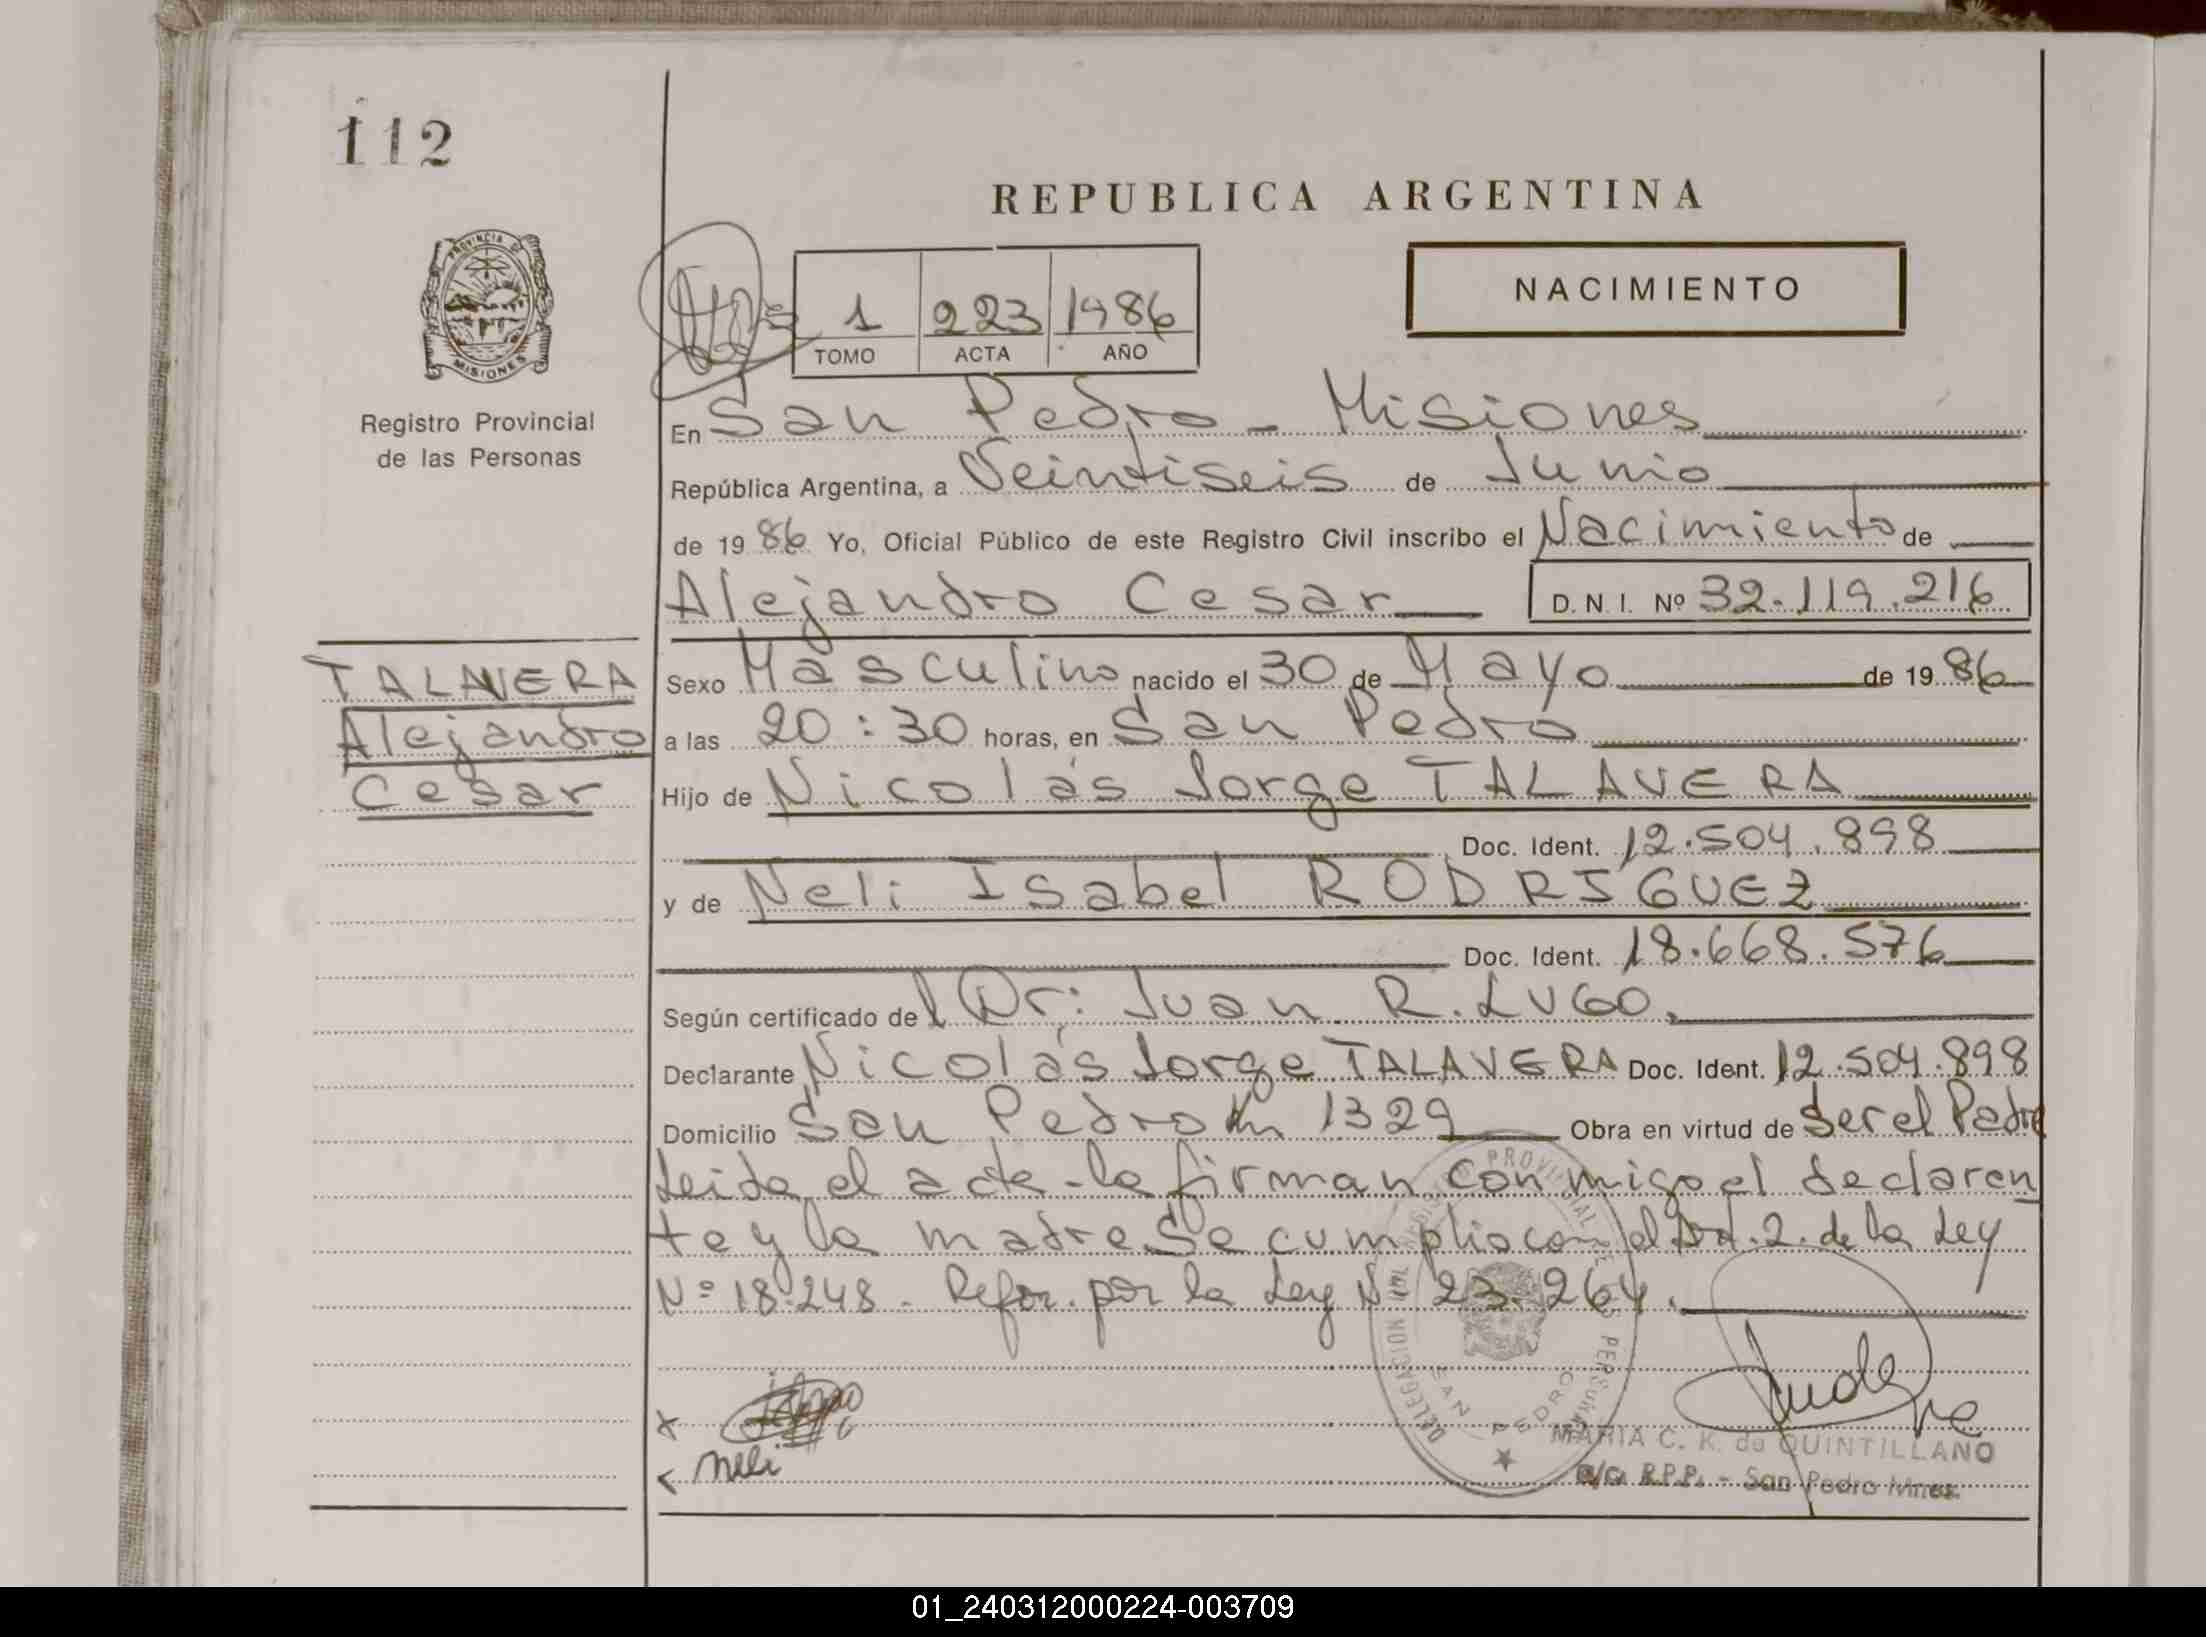 112
REPUBLICA ARGENTINA
PROVINCIA D
MISIONES
1 223 1986
TOMO ACTA AÑO
NACIMIENTO
Registro Provincial
de las Personas
En San Pedro - Misiones
República Argentina, a Veintiseis de Junio
de 1986 Yo, Oficial Público de este Registro Civil inscribo el Nacimiento de
Alejandro Cesar D.N.I. Nº 32.119.216
TALAVERA
Alejandro
Cesar
Sexo Masculino nacido el 30 de Mayo de 1986
a las 20:30 horas, en San Pedro
Hijo de Nicolás Jorge TALAVERA
Doc. Ident. 12.504.898
y de Neli Isabel RODRIGUEZ
Doc. Ident. 18.668.576
Según certificado del Dr: Juan R. LUGO.
Declarante Nicolás Jorge TALAVERA Doc. Ident. 12.504.898
Domicilio San Pedro Km 1329 Obra en virtud de Ser el Padre
Leida el acta - la firman conmigo el declaren
te y la madre Se cumplio con el Art. 2. de la Ley
Nº 18.248. Refor. por la Ley Nº 23.264.
DELEGACION PROVINCIAL DE LAS PERSONAS
SAN PEDRO
x
x Neli
MARIA C. K. de QUINTILLANO
a/c. R.P.P. - San Pedro Mnes.
01_240312000224-003709